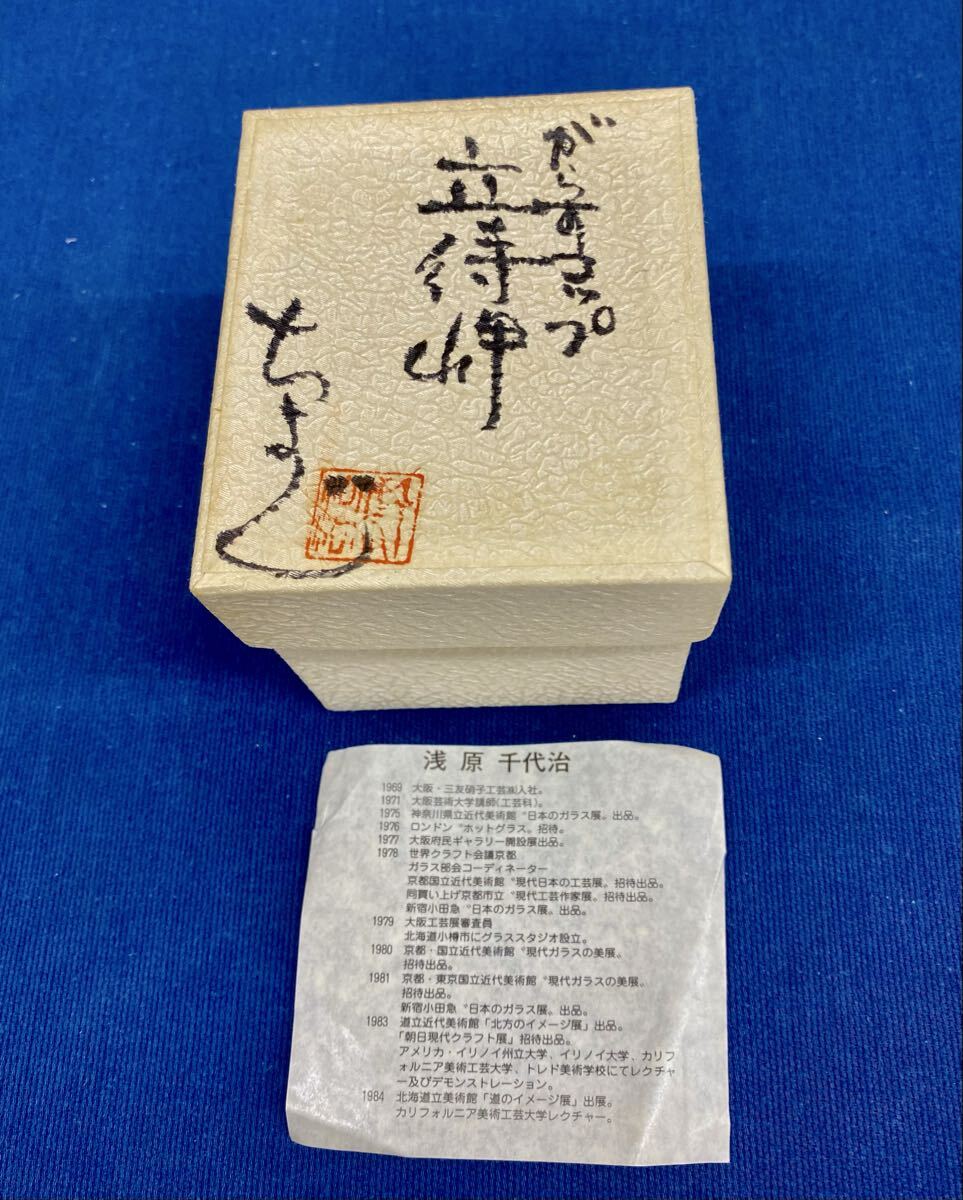 がらすコップ
立待岬
ちよじ
浅原 千代治
1969 大阪・三友硝子工芸㈱入社。
1971 大阪芸術大学講師(工芸科)。
1975 神奈川県立近代美術館〝日本のガラス展〟出品。
1976 ロンドン〝ホットグラス〟招待。
1977 大阪府民ギャラリー開設展出品。
1978 世界クラフト会議京都
ガラス部会コーディネーター
京都国立近代美術館〝現代日本の工芸展〟招待出品。
同買い上げ京都市立〝現代工芸作家展〟招待出品。
新宿小田急〝日本のガラス展〟出品。
1979 大阪工芸展審査員
北海道小樽市にグラススタジオ設立。
1980 京都・国立近代美術館〝現代ガラスの美展〟
招待出品。
1981 京都・東京国立近代美術館〝現代ガラスの美展〟
招待出品。
新宿小田急〝日本のガラス展〟出品。
1983 道立近代美術館「北方のイメージ展」出品。
「朝日現代クラフト展」招待出品。
アメリカ・イリノイ州立大学、イリノイ大学、カリフ
ォルニア美術工芸大学、トレド美術学校にてレクチャ
ー及びデモンストレーション。
1984 北海道立美術館「道のイメージ展」出展。
カリフォルニア美術工芸大学レクチャー。